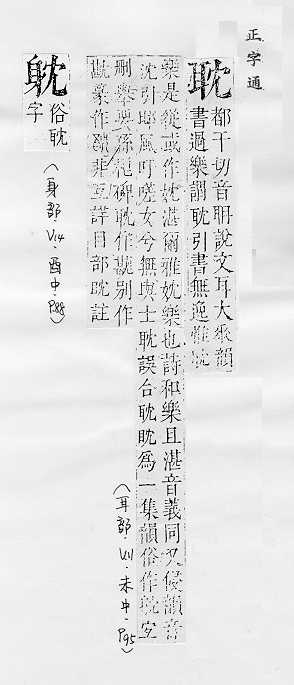 正字通
耽
都干切音聃說文耳大垂韻
書過樂謂耽引書無逸惟耽
樂是從或作妉湛爾雅妉樂也詩和樂且湛音義同又侵韻音
沈引邶風吁嗟女兮無與士耽誤合耽眈為一集韻俗作躭宜
刪舉要孫愐碑耽作 別作
作 非互詳目部眈註
(耳部·V11·未中·P95)
躭
俗耽
字
(身部·V14·酉中·P88)